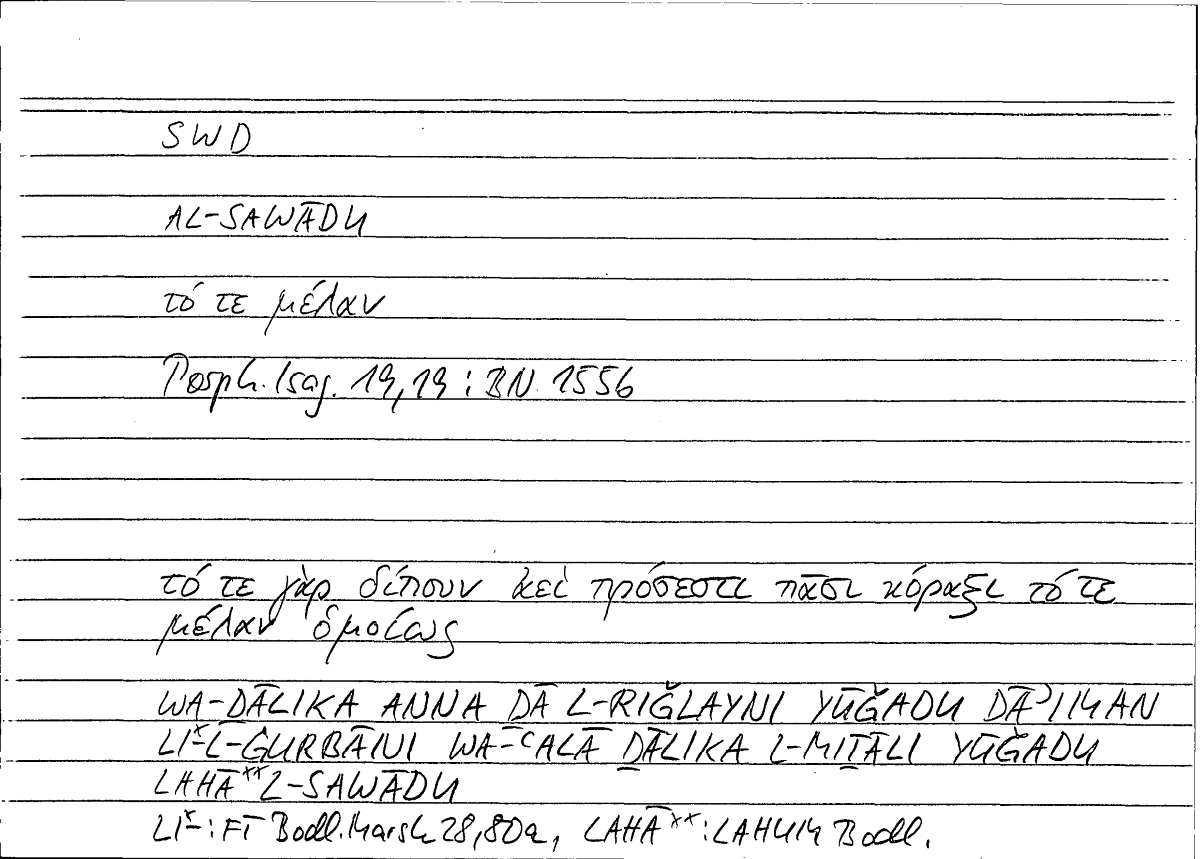 SWD
AL-SAWĀDU
τό τε μέλαν
Porph. Isag. 19,19 : BN. 1556
τό τε γὰρ δίπουν ἀεὶ πρόσεστι πᾶσι κόραξι τό τε
μέλαν ὁμοίως
WA-ḎĀLIKA ANNA ḎĀ L-RIǦLAYNI YŪǦADU DĀʾIMAN
LI*-L-ĠURBĀNI WA-ʿALĀ ḎĀLIKA L-MIṮĀLI YŪǦADU
LAHĀ** L-SAWĀDU
LI*- : FĪ Bodl. Marsh 28,80a, LAHĀ** : LAHUM Bodl.